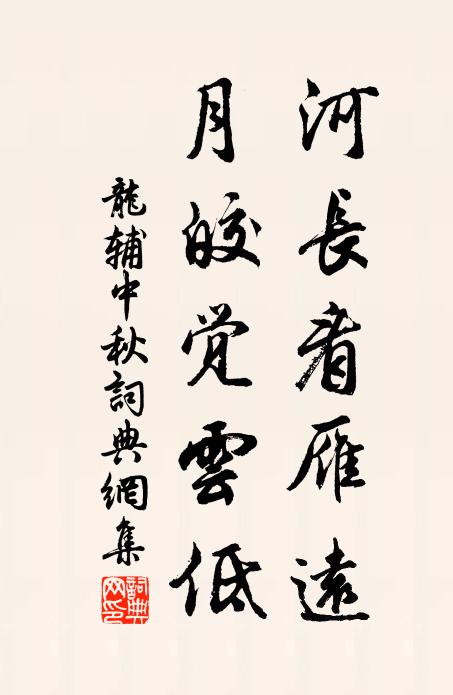 河長看雁遠
月皎觉雲低
龍辅中秋詞典網集
詞典网印